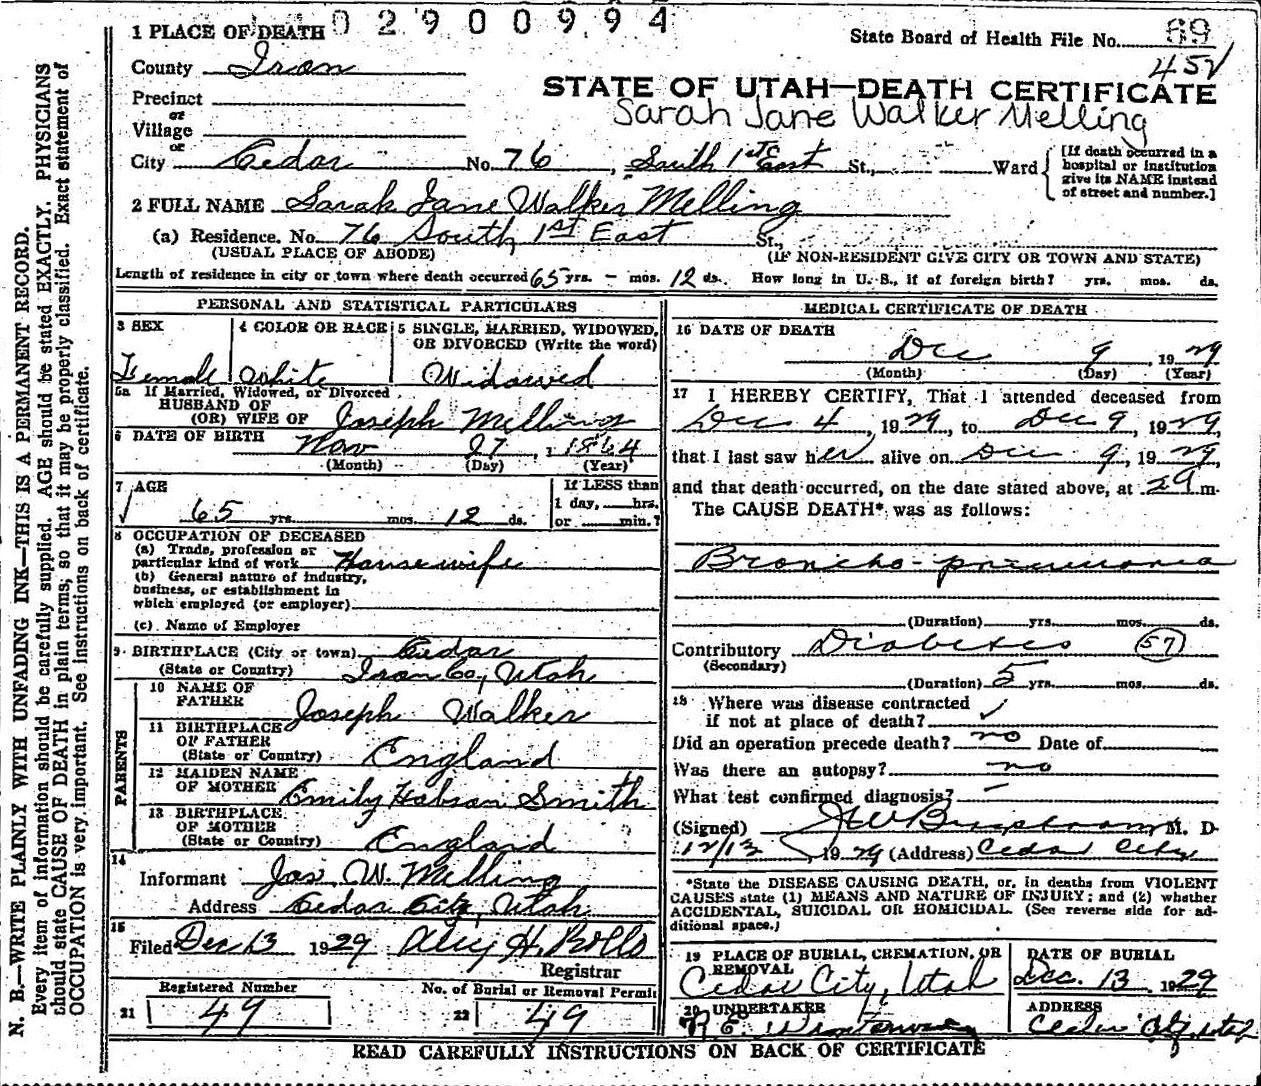 02900994
1 PLACE OF DEATH
State Board of Health File No. 69
452
County Iron
STATE OF UTAH—DEATH CERTIFICATE
Precinct
or
Village
Sarah Jane Walker Melling
or
City Cedar No. 76, South 1st East St., Ward
[If death occurred in a
hospital or institution
give its NAME instead
of street and number.]
2 FULL NAME Sarah Jane Walker Melling
(a) Residence. No. 76 South 1st East St.,
(USUAL PLACE OF ABODE) (IF NON-RESIDENT GIVE CITY OR TOWN AND STATE)
Length of residence in city or town where death occurred 65 yrs. - mos. 12 ds. How long in U. S., if of foreign birth? yrs. mos. ds.
PERSONAL AND STATISTICAL PARTICULARS
3 SEX
Female
4 COLOR OR RACE
White
5 SINGLE, MARRIED, WIDOWED,
OR DIVORCED (Write the word)
Widowed
5a If Married, Widowed, or Divorced
HUSBAND OF
(OR) WIFE OF Joseph Melling
6 DATE OF BIRTH Nov 27, 1864
(Month) (Day) (Year)
7 AGE
65 yrs. mos. 12 ds.
If LESS than
1 day, hrs.
or min.?
8 OCCUPATION OF DECEASED
(a) Trade, profession or
particular kind of work Housewife
(b) General nature of industry,
business, or establishment in
which employed (or employer)
(c) Name of Employer
9 BIRTHPLACE (City or town) Cedar
(State or Country) Iron Co, Utah
PARENTS
10 NAME OF
FATHER Joseph Walker
11 BIRTHPLACE
OF FATHER
(State or Country) England
12 MAIDEN NAME
OF MOTHER Emily Hobson Smith
13 BIRTHPLACE
OF MOTHER
(State or Country) England
14
Informant Jos. W. Melling
Address Cedar City, Utah
15
Filed Dec 13 1929 H. Rollo
Registrar
Registered Number
21 49
No. of Burial or Removal Permit
22 49
MEDICAL CERTIFICATE OF DEATH
16 DATE OF DEATH
Dec 9, 1929
(Month) (Day) (Year)
17 I HEREBY CERTIFY, That I attended deceased from
Dec 4, 1929, to Dec 9, 1929,
that I last saw her alive on Dec 9, 1929,
and that death occurred, on the date stated above, at m.
The CAUSE DEATH* was as follows:
Broncho-pneumonia
(Duration) yrs. mos. ds.
Contributory Diabetes 57
(Secondary)
(Duration) 5 yrs. mos. ds.
18 Where was disease contracted
if not at place of death? ✓
Did an operation precede death? no Date of
Was there an autopsy? no
What test confirmed diagnosis? -
(Signed) M. D.
12/13, 1929 (Address) Cedar City
*State the DISEASE CAUSING DEATH, or, in deaths from VIOLENT
CAUSES state (1) MEANS AND NATURE OF INJURY; and (2) whether
ACCIDENTAL, SUICIDAL OR HOMICIDAL. (See reverse side for ad-
ditional space.)
19 PLACE OF BURIAL, CREMATION, OR
REMOVAL
Cedar City, Utah
DATE OF BURIAL
Dec. 13 1929
20 UNDERTAKER
ADDRESS
Cedar City, Utah
READ CAREFULLY INSTRUCTIONS ON BACK OF CERTIFICATE
N. B.—WRITE PLAINLY WITH UNFADING INK—THIS IS A PERMANENT RECORD.
Every item of information should be carefully supplied. AGE should be stated EXACTLY. PHYSICIANS
should state CAUSE OF DEATH in plain terms, so that it may be properly classified. Exact statement of
OCCUPATION is very important. See instructions on back of certificate.